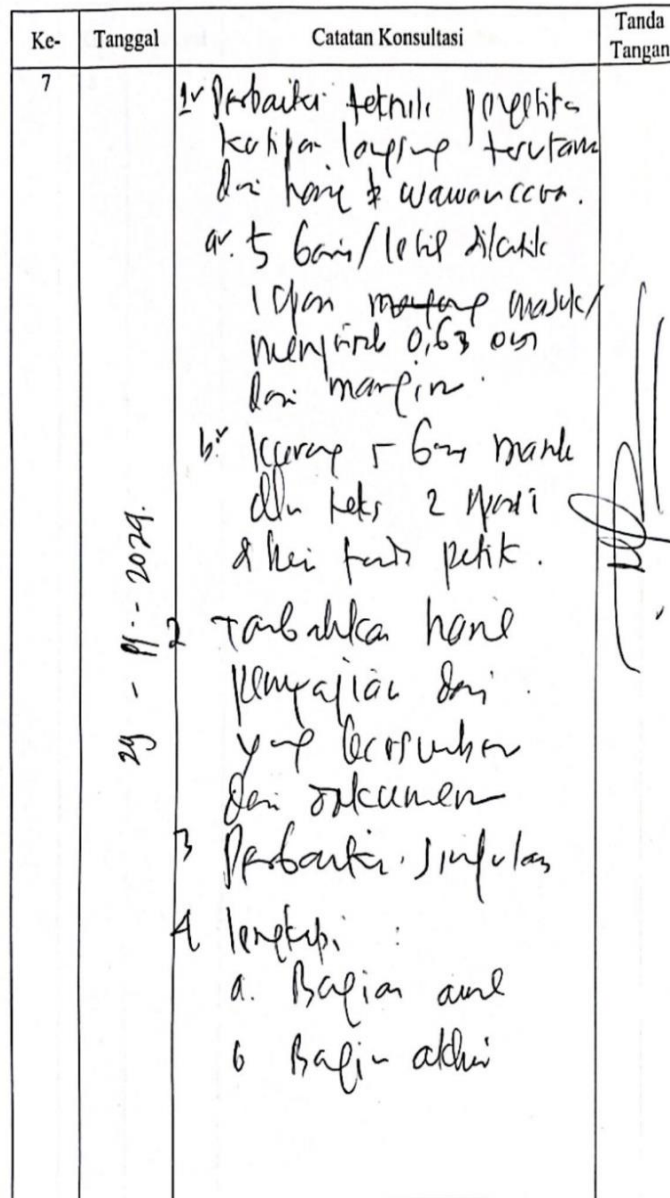 Ke- Tanggal Catatan Konsultasi Tanda Tangan
7
1 Perbaiki teknik pengutipan
kutipan langsung terutama
dari hasil wawancara.
a. 5 baris/lebih diketik
1 spasi masuk/
menjorok 0,63 cm
dari margin.
b. Kurang 5 baris masuk
dlm teks 2 spasi
& beri tanda petik.
29 - 2024.
2 Tambahkan hasil
penyajian dari
yang bersumber
dari dokumen
3 Perbaiki simpulan
4 lengkapi :
a. Bagian awal
b Bagian akhir